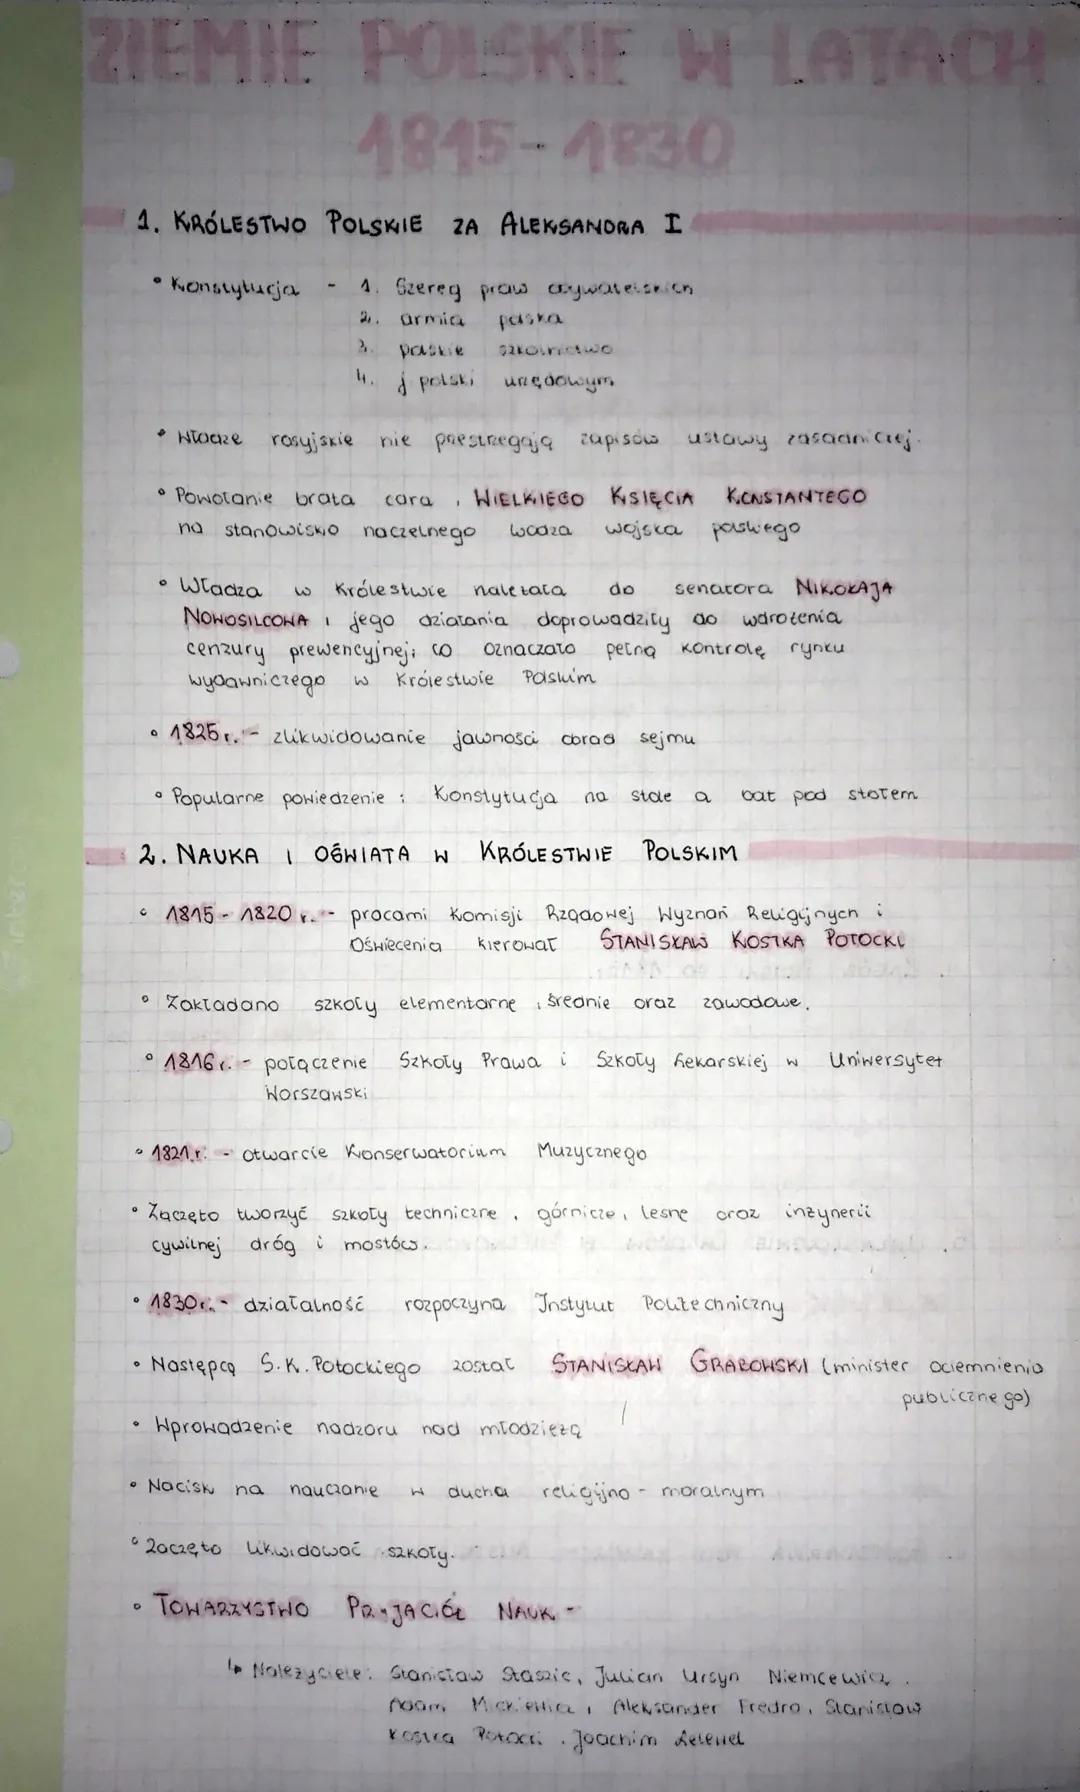 ZIEMIE POLSKIE W LATACH
1815-1830
1. KRÓLESTWO POLSKIE ZA ALEKSANDRA I
• Konstytucja - 1. Szereg praw obywatelskich
2. armia polska
3. polskie szkolnictwo
4. j polski urzędowym
• Władze rosyjskie nie przestrzegają zapisów ustawy zasadniczej.
• Powołanie brata cara, WIELKIEGO KSIĘCIA KONSTANTEGO
na stanowisko naczelnego wodza wojska polskiego
• Władza w Królestwie należała do senatora NIKOŁAJA
NOWOSILCOWA i jego działania doprowadziły do wdrożenia
cenzury prewencyjnej, co oznaczało pełną kontrolę rynku
wydawniczego w Królestwie Polskim
• 1825 r. - zlikwidowanie jawności obrad sejmu
• Popularne powiedzenie: Konstytucja na stole a bat pod stołem
2. NAUKA I OŚWIATA W KRÓLESTWIE POLSKIM
• 1815 - 1820 r. - pracami Komisji Rządowej Wyznań Religijnych i
Oświecenia kierował STANISŁAW KOSTKA POTOCKI
• Zakładano szkoły elementarne, średnie oraz zawodowe.
• 1816 r. - połączenie Szkoły Prawa i Szkoły Lekarskiej w Uniwersytet
Warszawski
• 1821 r. - otwarcie Konserwatorium Muzycznego
• Zaczęto tworzyć szkoły techniczne, górnicze, leśne oraz inżynerii
cywilnej dróg i mostów.
• 1830 r. - działalność rozpoczyna Instytut Politechniczny
• Następcą S.K. Potockiego został STANISŁAW GRABOWSKI (minister ociemnienia
publicznego)
• Wprowadzenie nadzoru nad młodzieżą
• Nacisk na nauczanie w ducha religijno - moralnym
• Zaczęto likwidować szkoły.
• TOWARZYSTWO PRZYJACIÓŁ NAUK -
↳ Założyciele: Stanisław Staszic, Julian Ursyn Niemcewicz,
Adam Mickiewicz, Aleksander Fredro, Stanisław
Kostka Potocki, Joachim Lelewel